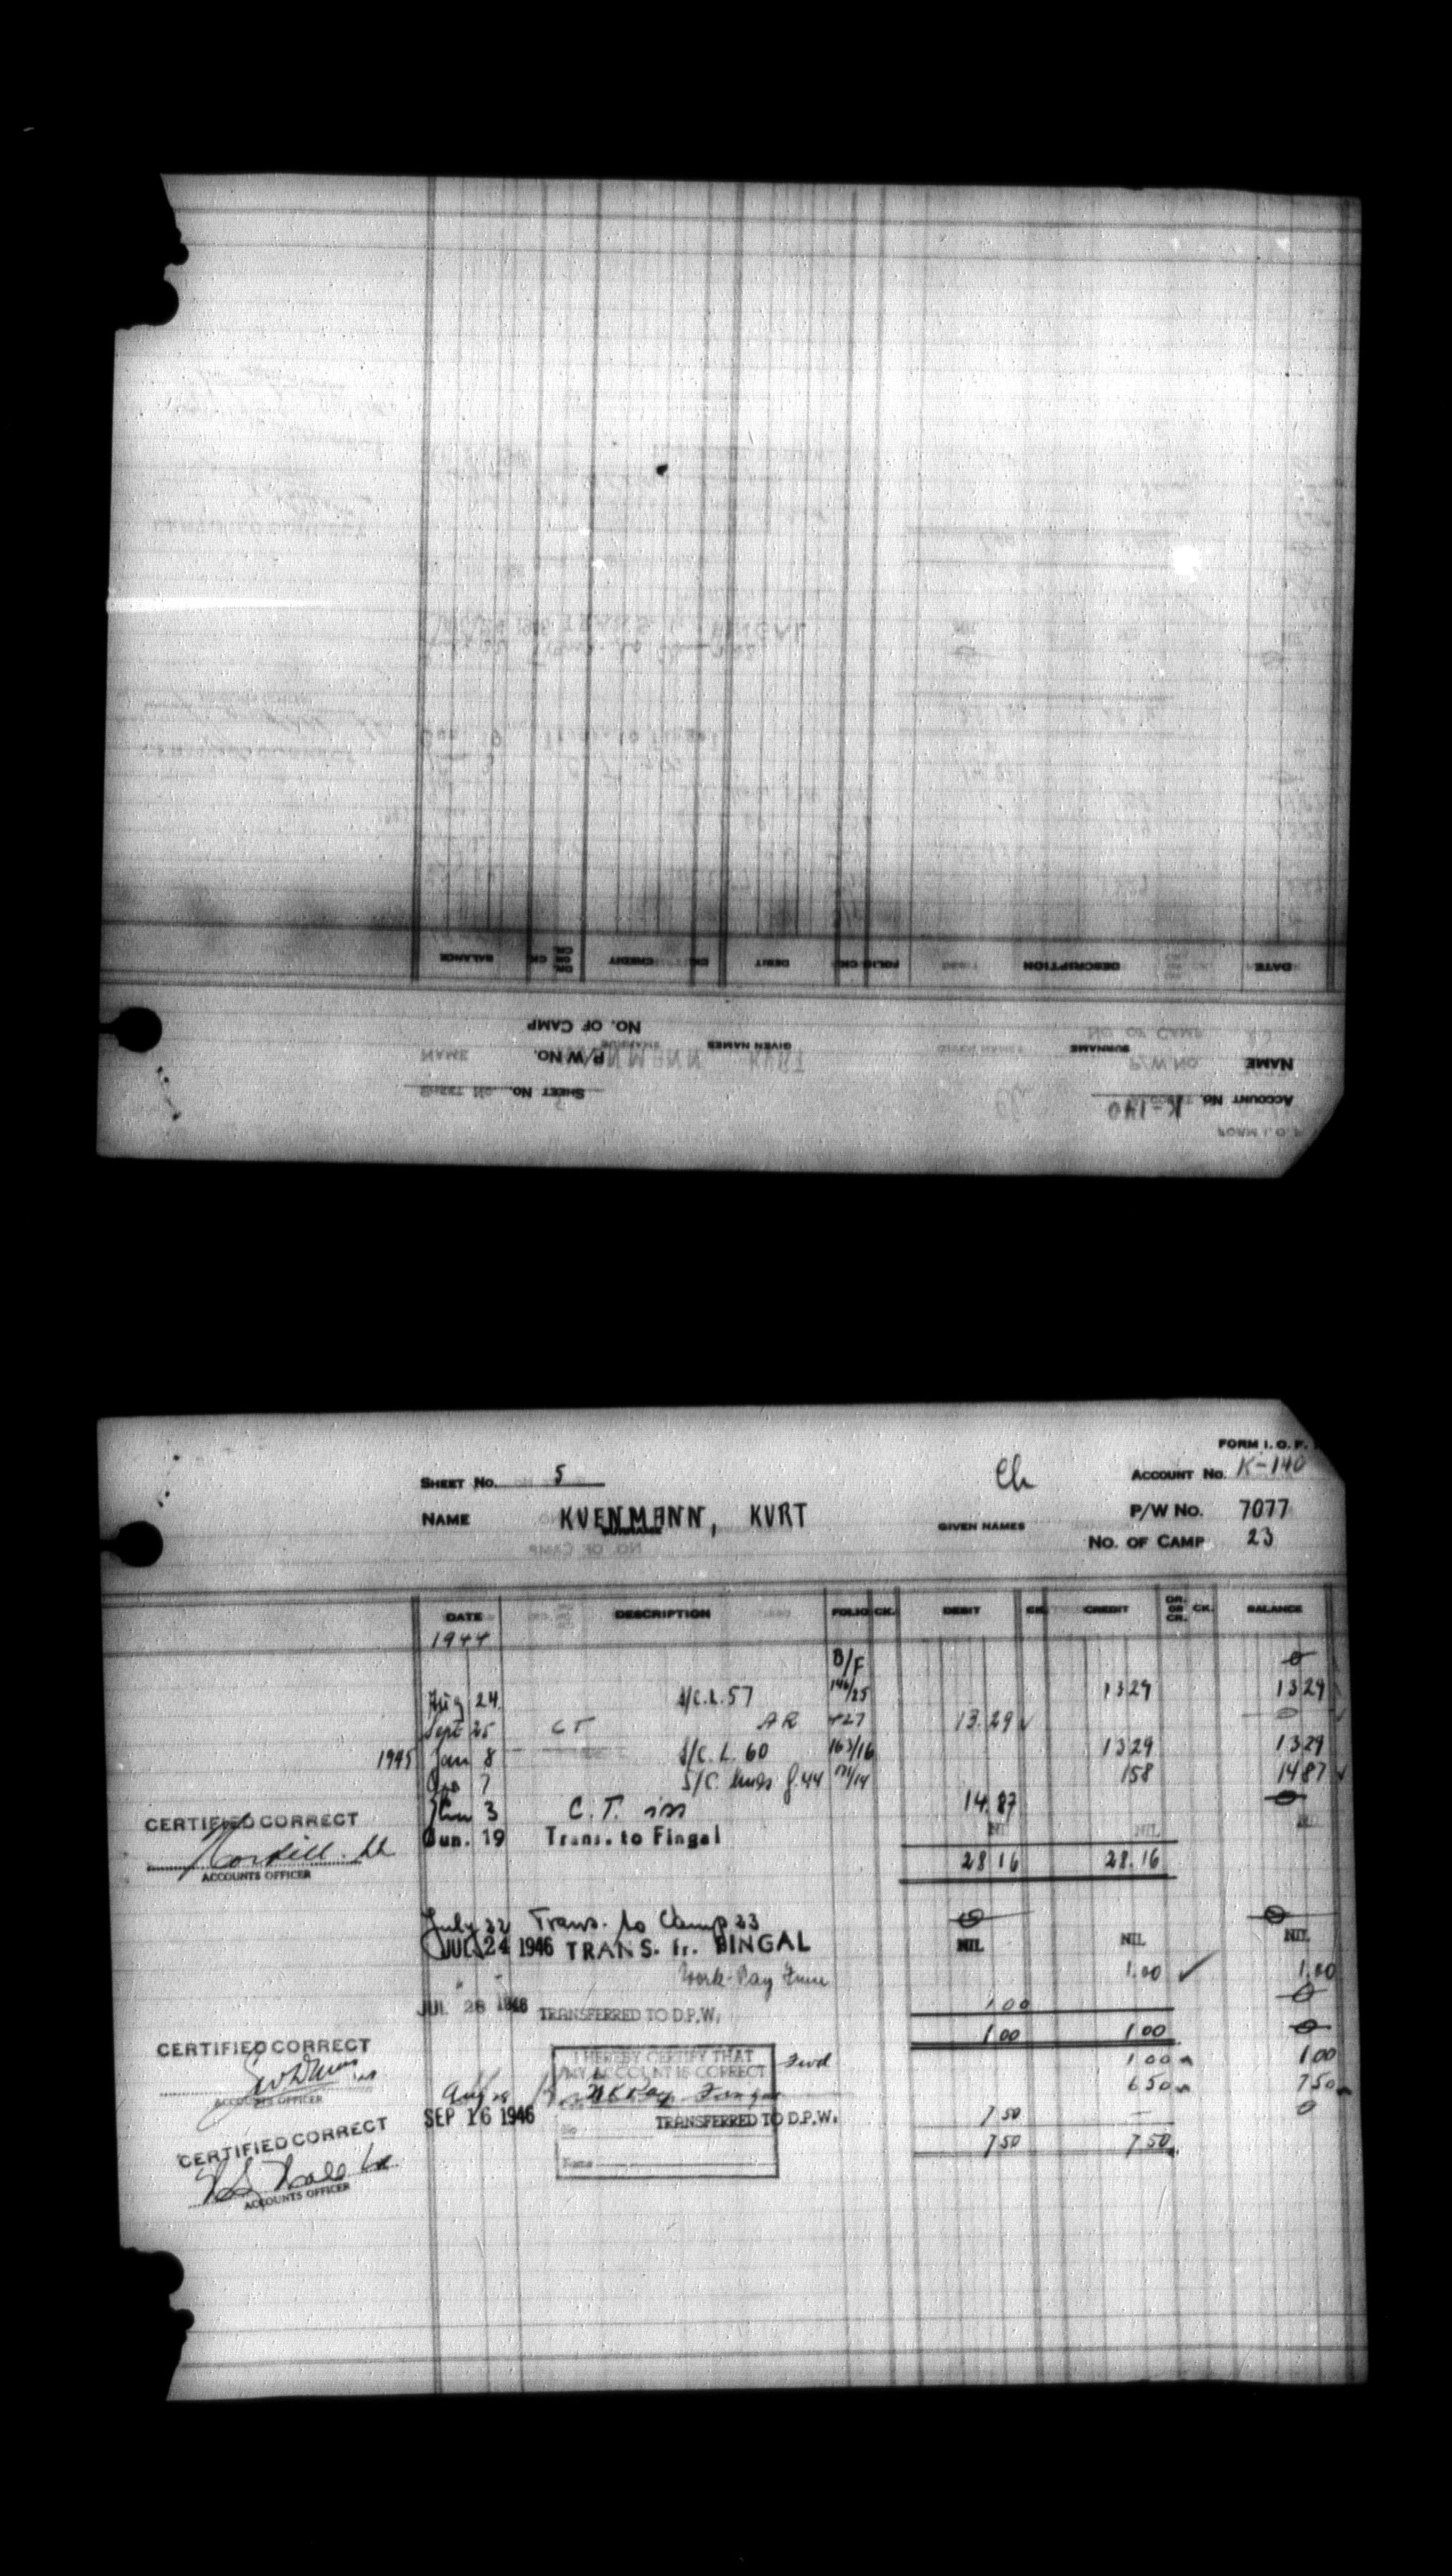 BALANCE CK. DR. OR CR. CREDIT CK. DEBIT CK. FOLIO DESCRIPTION DATE
NO. OF CAMP
P/W No. GIVEN NAMES SURNAME NAME
SHEET No. ACCOUNT No.
FORM I. O. P.
SHEET No. 5
ACCOUNT No. K-140
NAME KUENMANN, KURT
SURNAME GIVEN NAMES
P/W No. 7077
No. OF CAMP 23
DATE DESCRIPTION FOLIO CK. DEBIT CK. CREDIT DR. OR CR. CK. BALANCE
1944
B/F 0
Aug 24 S/C.L.57 146/25 13 29 13 29
Sept 25 CT AR 427 13.29 0
1945 Jan 8 S/C.L. 60 163/16 13 29 13 29
7 S/C 1 58 14 87
3 C.T. 14.87 0
Jun. 19 Trans. to Fingal NIL NIL NIL
28 16 28.16
CERTIFIED CORRECT
ACCOUNTS OFFICER
July 22 Trans. to Camp 23 0 0
JUL 24 1946 TRANS. fr. FINGAL NIL NIL NIL
Work Pay June 1.00 1.00
JUL 26 1946 TRANSFERRED TO D.P.W. 1 00 0
1 00 1 00 0
CERTIFIED CORRECT
ACCOUNTS OFFICER
I HEREBY CERTIFY THAT
MY ACCOUNT IS CORRECT
Fwd 1 00 1 00
Aug 28 Pay 6 50 7 50
SEP 16 1946 TRANSFERRED TO D.P.W. 7 50 — 0
No
7 50 7 50
Name
CERTIFIED CORRECT
ACCOUNTS OFFICER